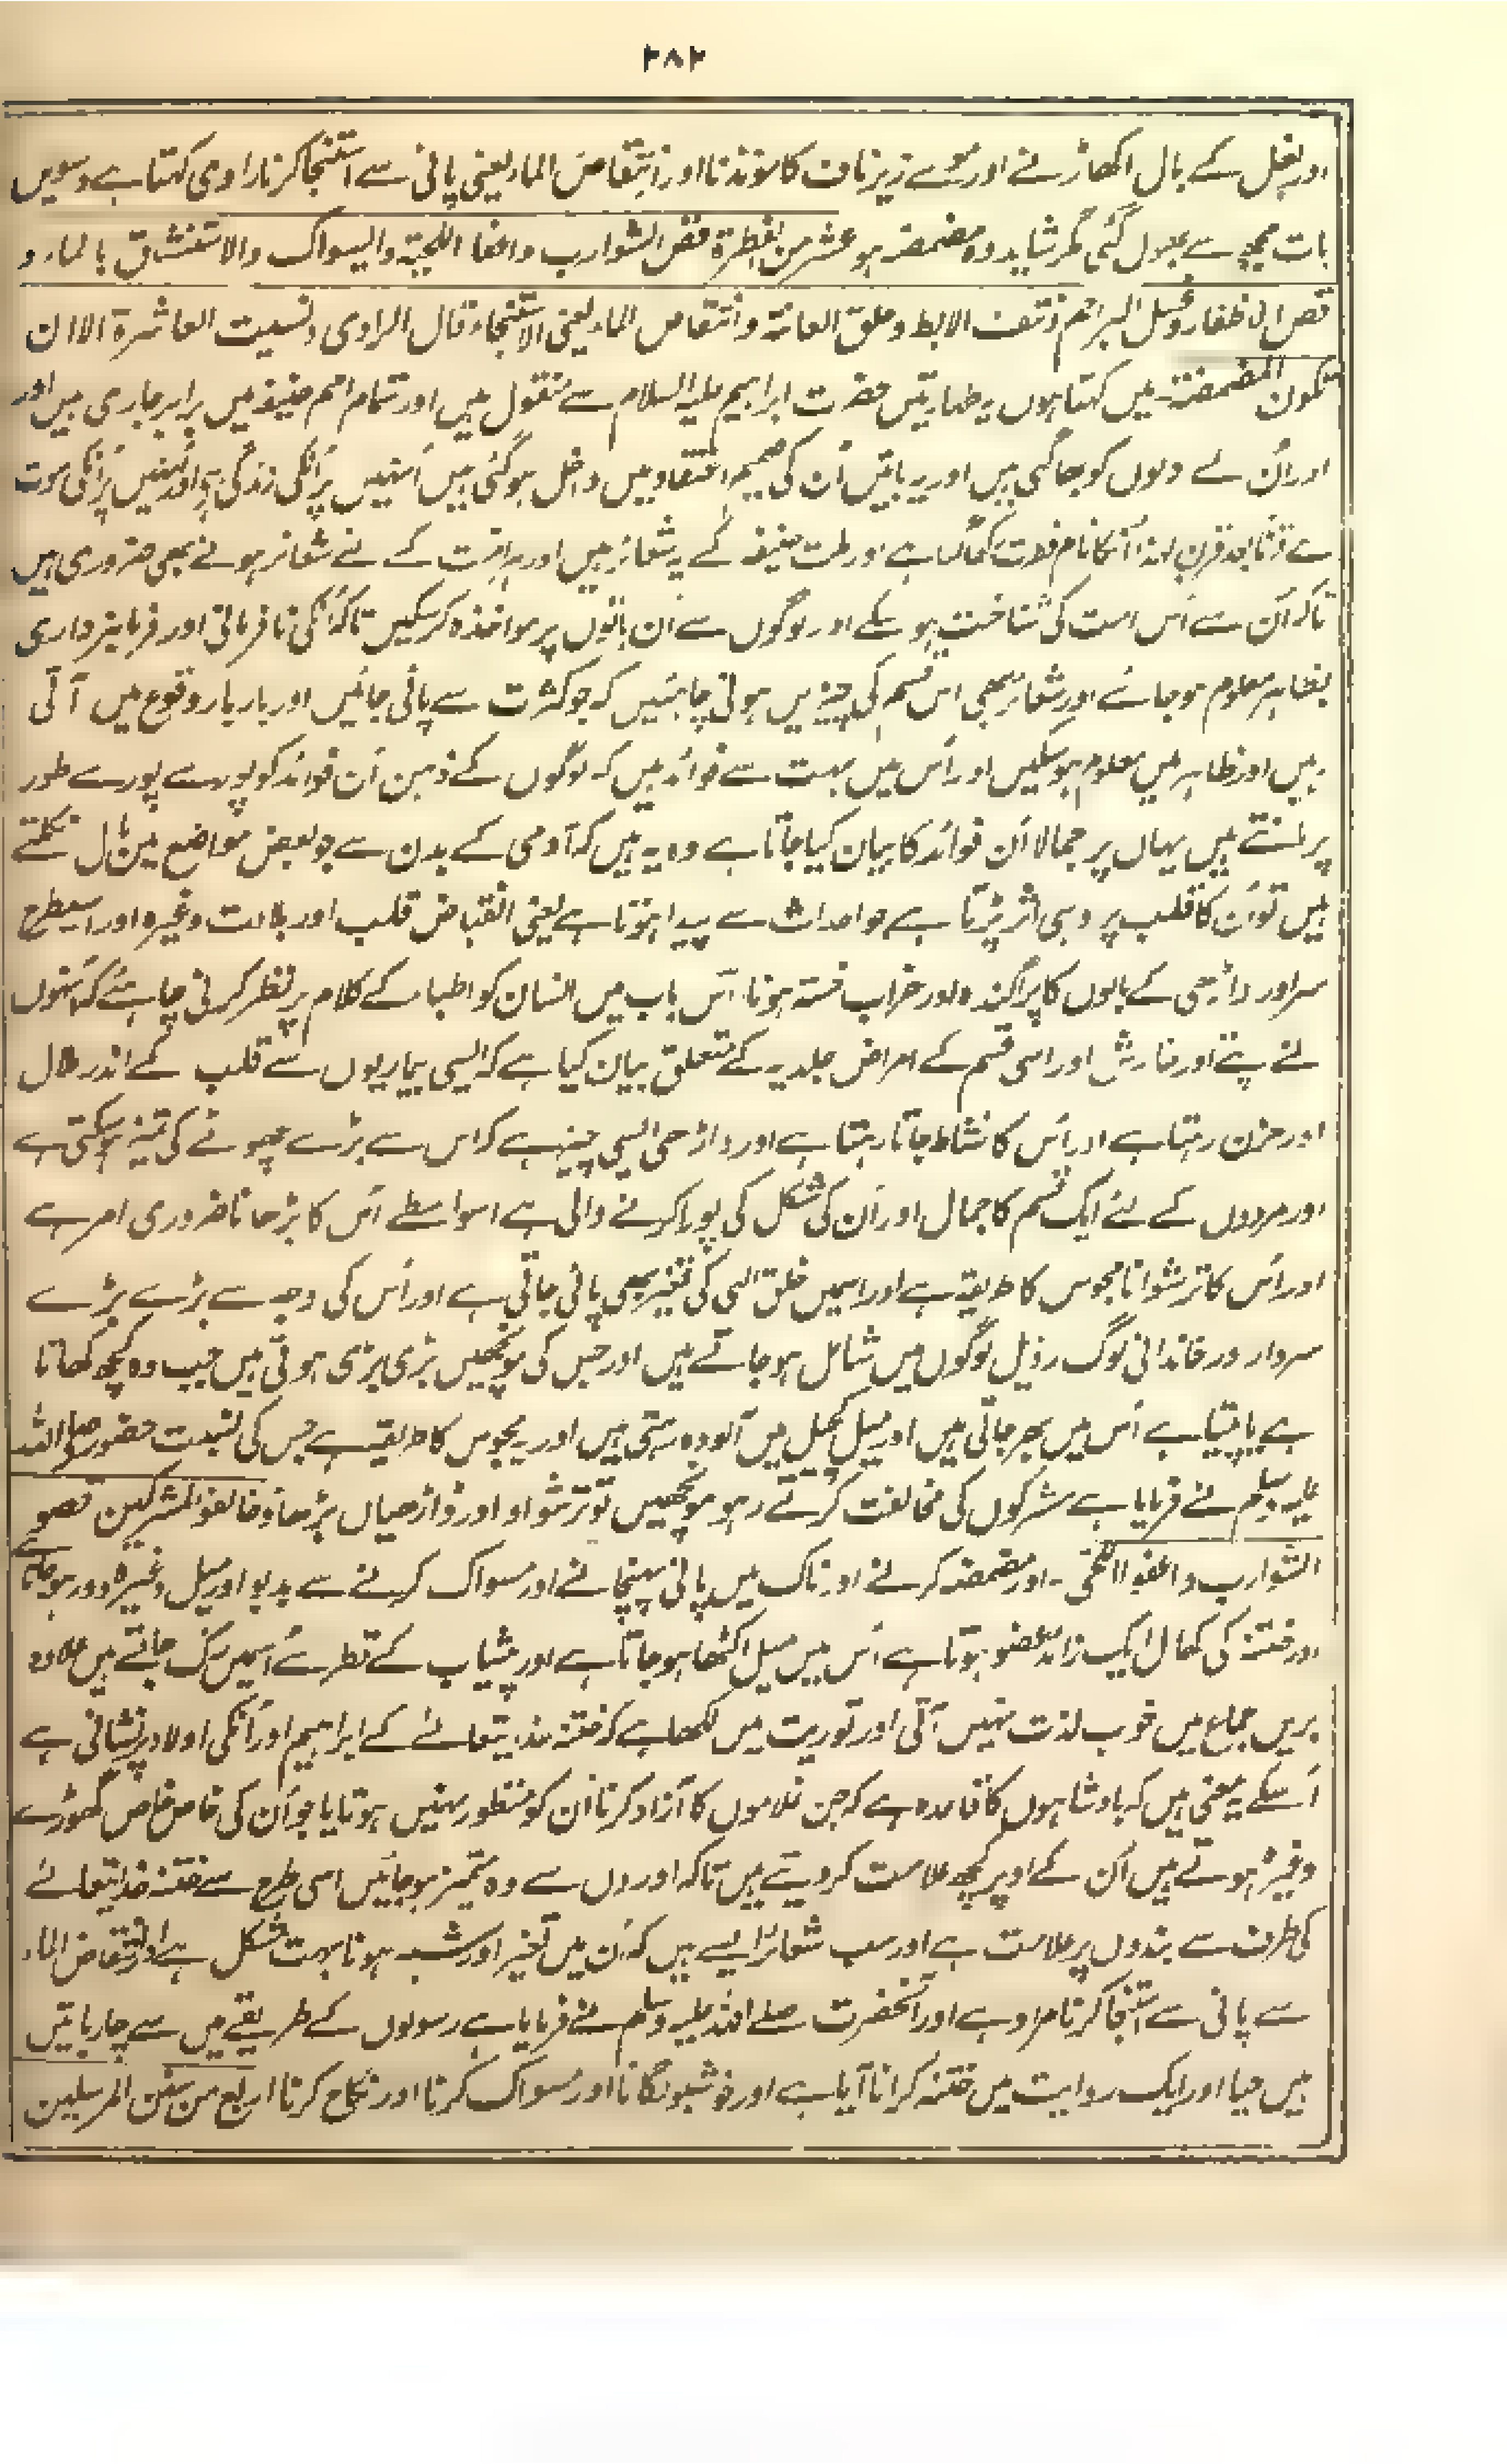 ۲۸۲
اور بغل کے بال اکھاڑنے اور موئے زیر ناف کا مونڈنا اور انتقاص الماء یعنی پانی سے استنجا کرنا راوی کہتا ہے دسویں
بات مجھ سے بھول گئی مگر شاید وہ مضمضہ ہو عشر من الفطرة قص الشوارب واعفا اللحیة والسواک والاستنشاق بالماء و
قص الاظفار وغسل البراجم ونتف الابط وحلق العانة وانتقاص الماء یعنی الاستنجاء قال الراوی ونسیت العاشرة الا ان
تکون المضمضة۔ میں کہتا ہوں یہ طہارتیں حضرت ابراہیم علیہ السلام سے منقول ہیں اور تمام امم حنیفہ میں برابر جاری ہیں اور
اور ان کے دلوں کو بھا گئی ہیں اور یہ باتیں ان کی صمیم اعتقاد میں داخل ہو گئی ہیں انہیں پر انکی زندگی ہے اور انہیں پر انکی موت
ہے قرناً بعد قرن لہذا انکا نام فطرت رکھا گیا ہے اور ملت حنیفہ کے یہ شعائر ہیں اور ہر ملت کے لئے شعائر ہونے بھی ضروری ہیں
تاکہ ان سے اس امت کی شناخت ہو سکے اور لوگوں سے ان باتوں پر مواخذہ کر سکیں تاکہ انکی نافرمانی اور فرمانبرداری
بظاہر معلوم ہو جائے اور شعائر بھی اس قسم کی چیزیں ہونی چاہئیں کہ جو کثرت سے پائی جائیں اور بار بار وقوع میں آتی
رہیں اور ظاہر میں معلوم ہو سکیں اور اس میں بہت سے فوائد ہیں کہ لوگوں کے ذہن ان فوائد کو پورے پورے طور
پر مانتے ہیں یہاں پر جمالا ان فوائد کا بیان کیا جاتا ہے وہ یہ ہیں کہ آدمی کے بدن سے جو بعض مواضع میں بال نکلتے
ہیں تو ان کا قلب پر وہی اثر پڑتا ہے جو احداث سے پیدا ہوتا ہے یعنی انقباض قلب اور بلادت وغیرہ اور اسیطرح
سر اور داڑھی کے بالوں کا پراگندہ اور خراب خستہ ہونا اس باب میں انسان کو اطباء کے کلام پر نظر کرنی چاہئے کہ انہوں
نے پتے اور خارش اور اسی قسم کے امراض جلدیہ کے متعلق بیان کیا ہے کہ ایسی بیماریوں سے قلب کے اندر ملال
اور حزن رہتا ہے اور اس کا نشاط جاتا رہتا ہے اور داڑھی ایسی چیز ہے کہ اس سے بڑے چھوٹے کی تمیز ہو سکتی ہے
اور مردوں کے لئے ایک قسم کا جمال اور ان کی شکل کی پورا کرنے والی ہے اسواسطے اس کا بڑھانا ضروری امر ہے
اور اس کا ترشوانا مجوس کا طریقہ ہے اور اسمیں خلق الہی کی تغییر بھی پائی جاتی ہے اور اس کی وجہ سے بڑے بڑے
سردار ور خاندانی لوگ رذیل لوگوں میں شامل ہو جاتے ہیں اور جس کی مونچھیں بڑی بڑی ہوتی ہیں جب وہ کچھ کھاتا
ہے یا پیتا ہے اس میں بھر جاتی ہیں اور میل کچیل میں آلودہ رہتی ہیں اور یہ مجوس کا طریقہ ہے جس کی نسبت حضور صلی اللہ
علیہ وسلم نے فرمایا ہے مشرکوں کی مخالفت کرتے رہو مونچھیں تو ترشواو اور ڈاڑھیاں بڑھاؤ خالفوا المشرکین قصو
الشوارب واعفوا اللحی۔ اور مضمضہ کرنے اور ناک میں پانی پہنچانے اور مسواک کرنے سے بدبو اور میل وغیرہ دور ہو جاتا ہے
اور ختنہ کی کھال ایک زائد عضو ہوتا ہے اس میں میل اکٹھا ہو جاتا ہے اور پیشاب کے قطرے اسمیں رک جاتے ہیں علاوہ
بریں جماع میں خوب لذت نہیں آتی اور توریت میں لکھا ہے کہ ختنہ خدایتعالے کے ابراہیم اور انکی اولاد پر نشانی ہے
اسکے یہ معنی ہیں کہ بادشاہوں کا قاعدہ ہے کہ جن غلاموں کا آزاد کرنا ان کو منظور نہیں ہوتا یا جو ان کی خاص خاص گھوڑے
وغیرہ ہوتے ہیں ان کے اوپر کچھ علامت کر دیتے ہیں تاکہ اوروں سے وہ متمیز ہو جائیں اسی طرح سے ختنہ خدایتعالے
کی طرف سے بندوں پر علامت ہے اور سب شعائر ایسے ہیں کہ ان میں تغیر اور شبہ ہونا بہت مشکل ہے اور انتقاص الماء
سے پانی سے استنجا کرنا مراد ہے اور آنحضرت صلے اللہ علیہ وسلم نے فرمایا ہے رسولوں کے طریقے میں سے چار باتیں
ہیں حیا اور ایک روایت میں ختنہ کرانا آیا ہے اور خوشبو لگانا اور مسواک کرنا اور نکاح کرنا اربع من سنن المرسلین